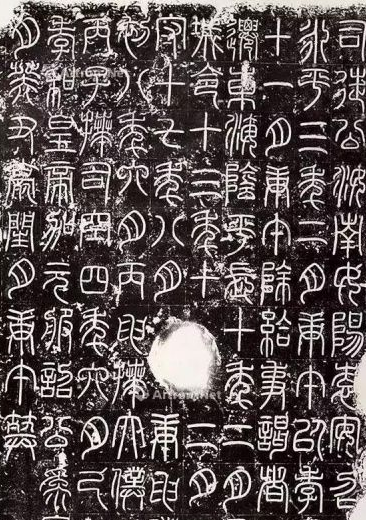 司徒公汝南女陽袁安召
永平三年二月庚午以孝
十一月庚午除給事謁者
遷東海陰平長十年二月
城令十三年十二月
守十七年八月庚申
初八年六月丙申拜太僕
丙子拜司空四年六月己
孝和皇帝加元服詔公為
月癸丑薨閏月庚午葬
Artron.Net